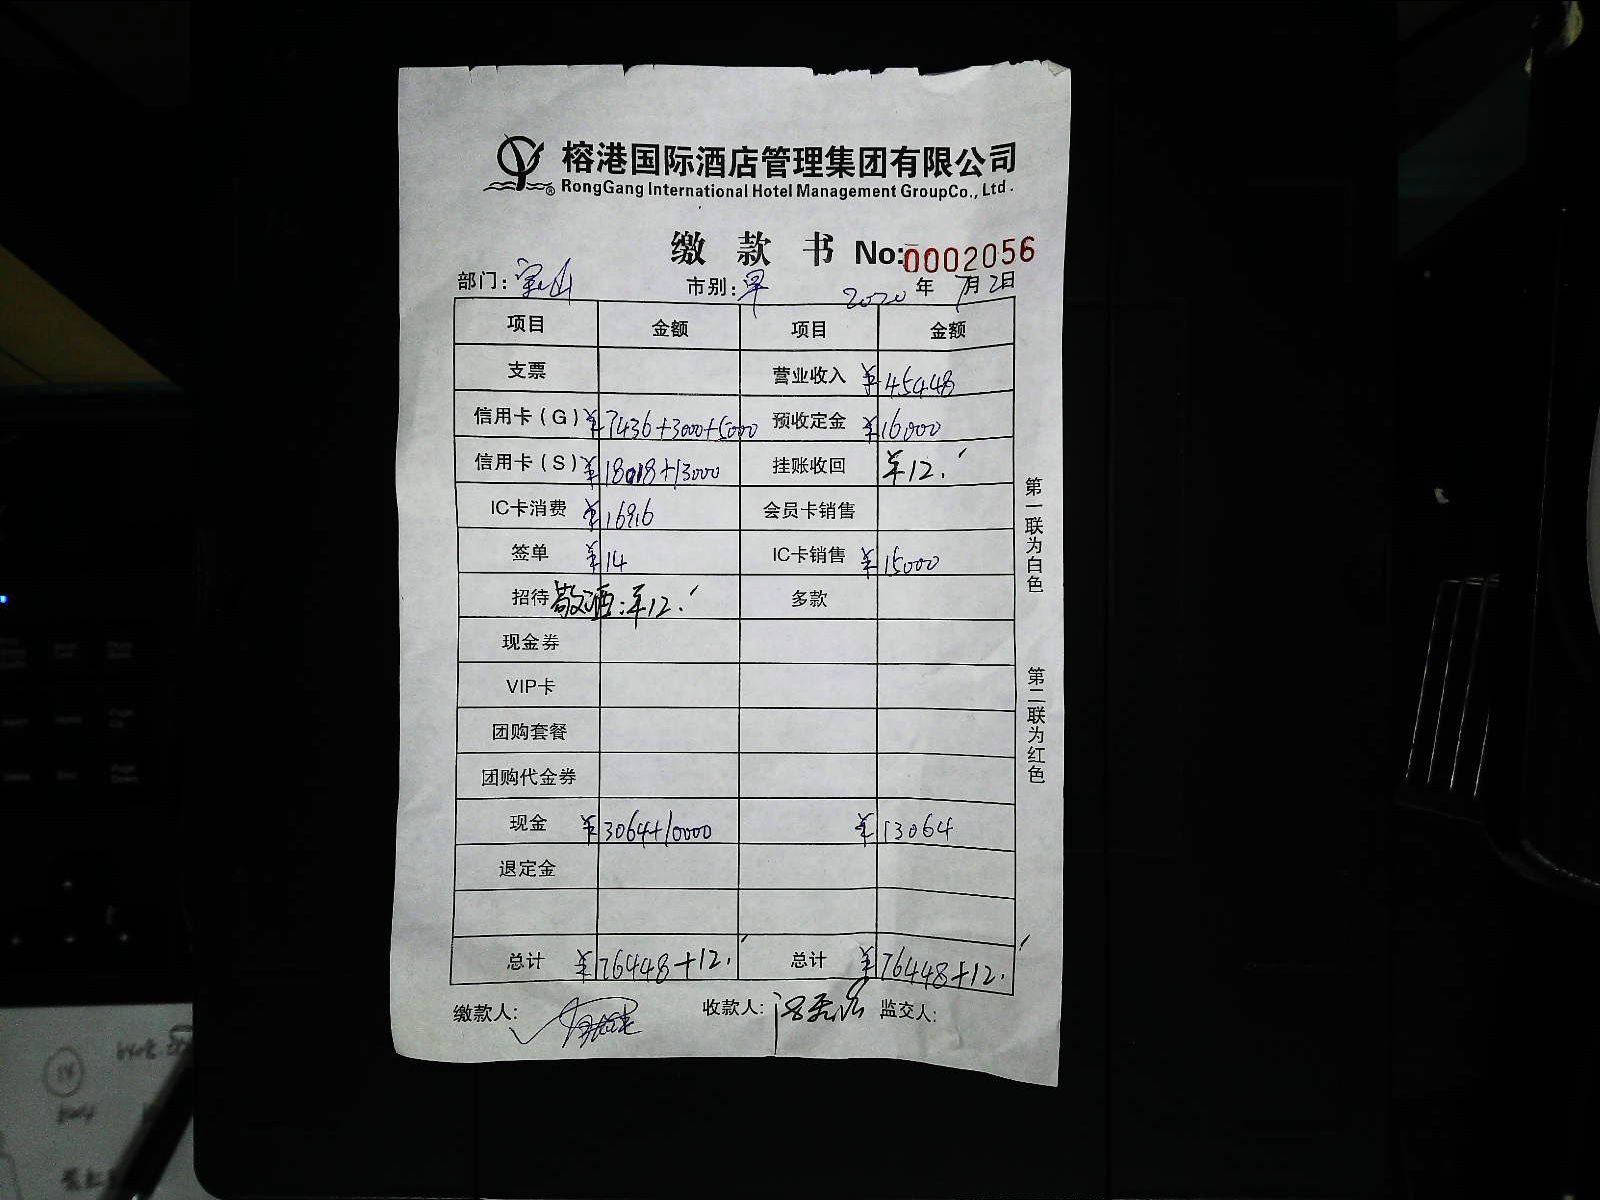 榕港国际酒店管理集团有限公司
® RongGang International Hotel Management GroupCo., Ltd.
缴 款 书 No:0002056
部门:宝山 市别:早 2020年7月2日
项目 金额 项目 金额
支票 营业收入 ¥45448
信用卡(G) ¥7436+3000+5000 预收定金 ¥16000
信用卡(S) ¥18018+13000 挂账收回 ¥12.
IC卡消费 ¥16916 会员卡销售
签单 ¥14 IC卡销售 ¥15000
招待 敬酒:¥12. 多款
现金券
VIP卡
团购套餐
团购代金券
现金 ¥3064+10000 ¥13064
退定金
总计 ¥76448+12. 总计 ¥76448+12.
缴款人: 收款人: 监交人:
第一联为白色
第二联为红色